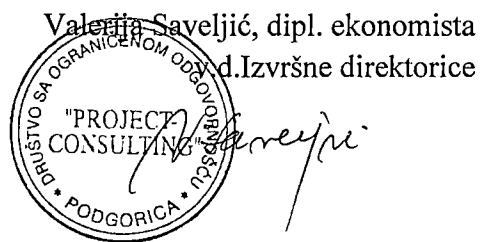 Valerija Saveljić, dipl. ekonomista
v.d.Izvršne direktorice
DRUŠTVO SA OGRANIČENOM ODGOVORNOŠĆU
"PROJECT-
CONSULTING"
* PODGORICA *